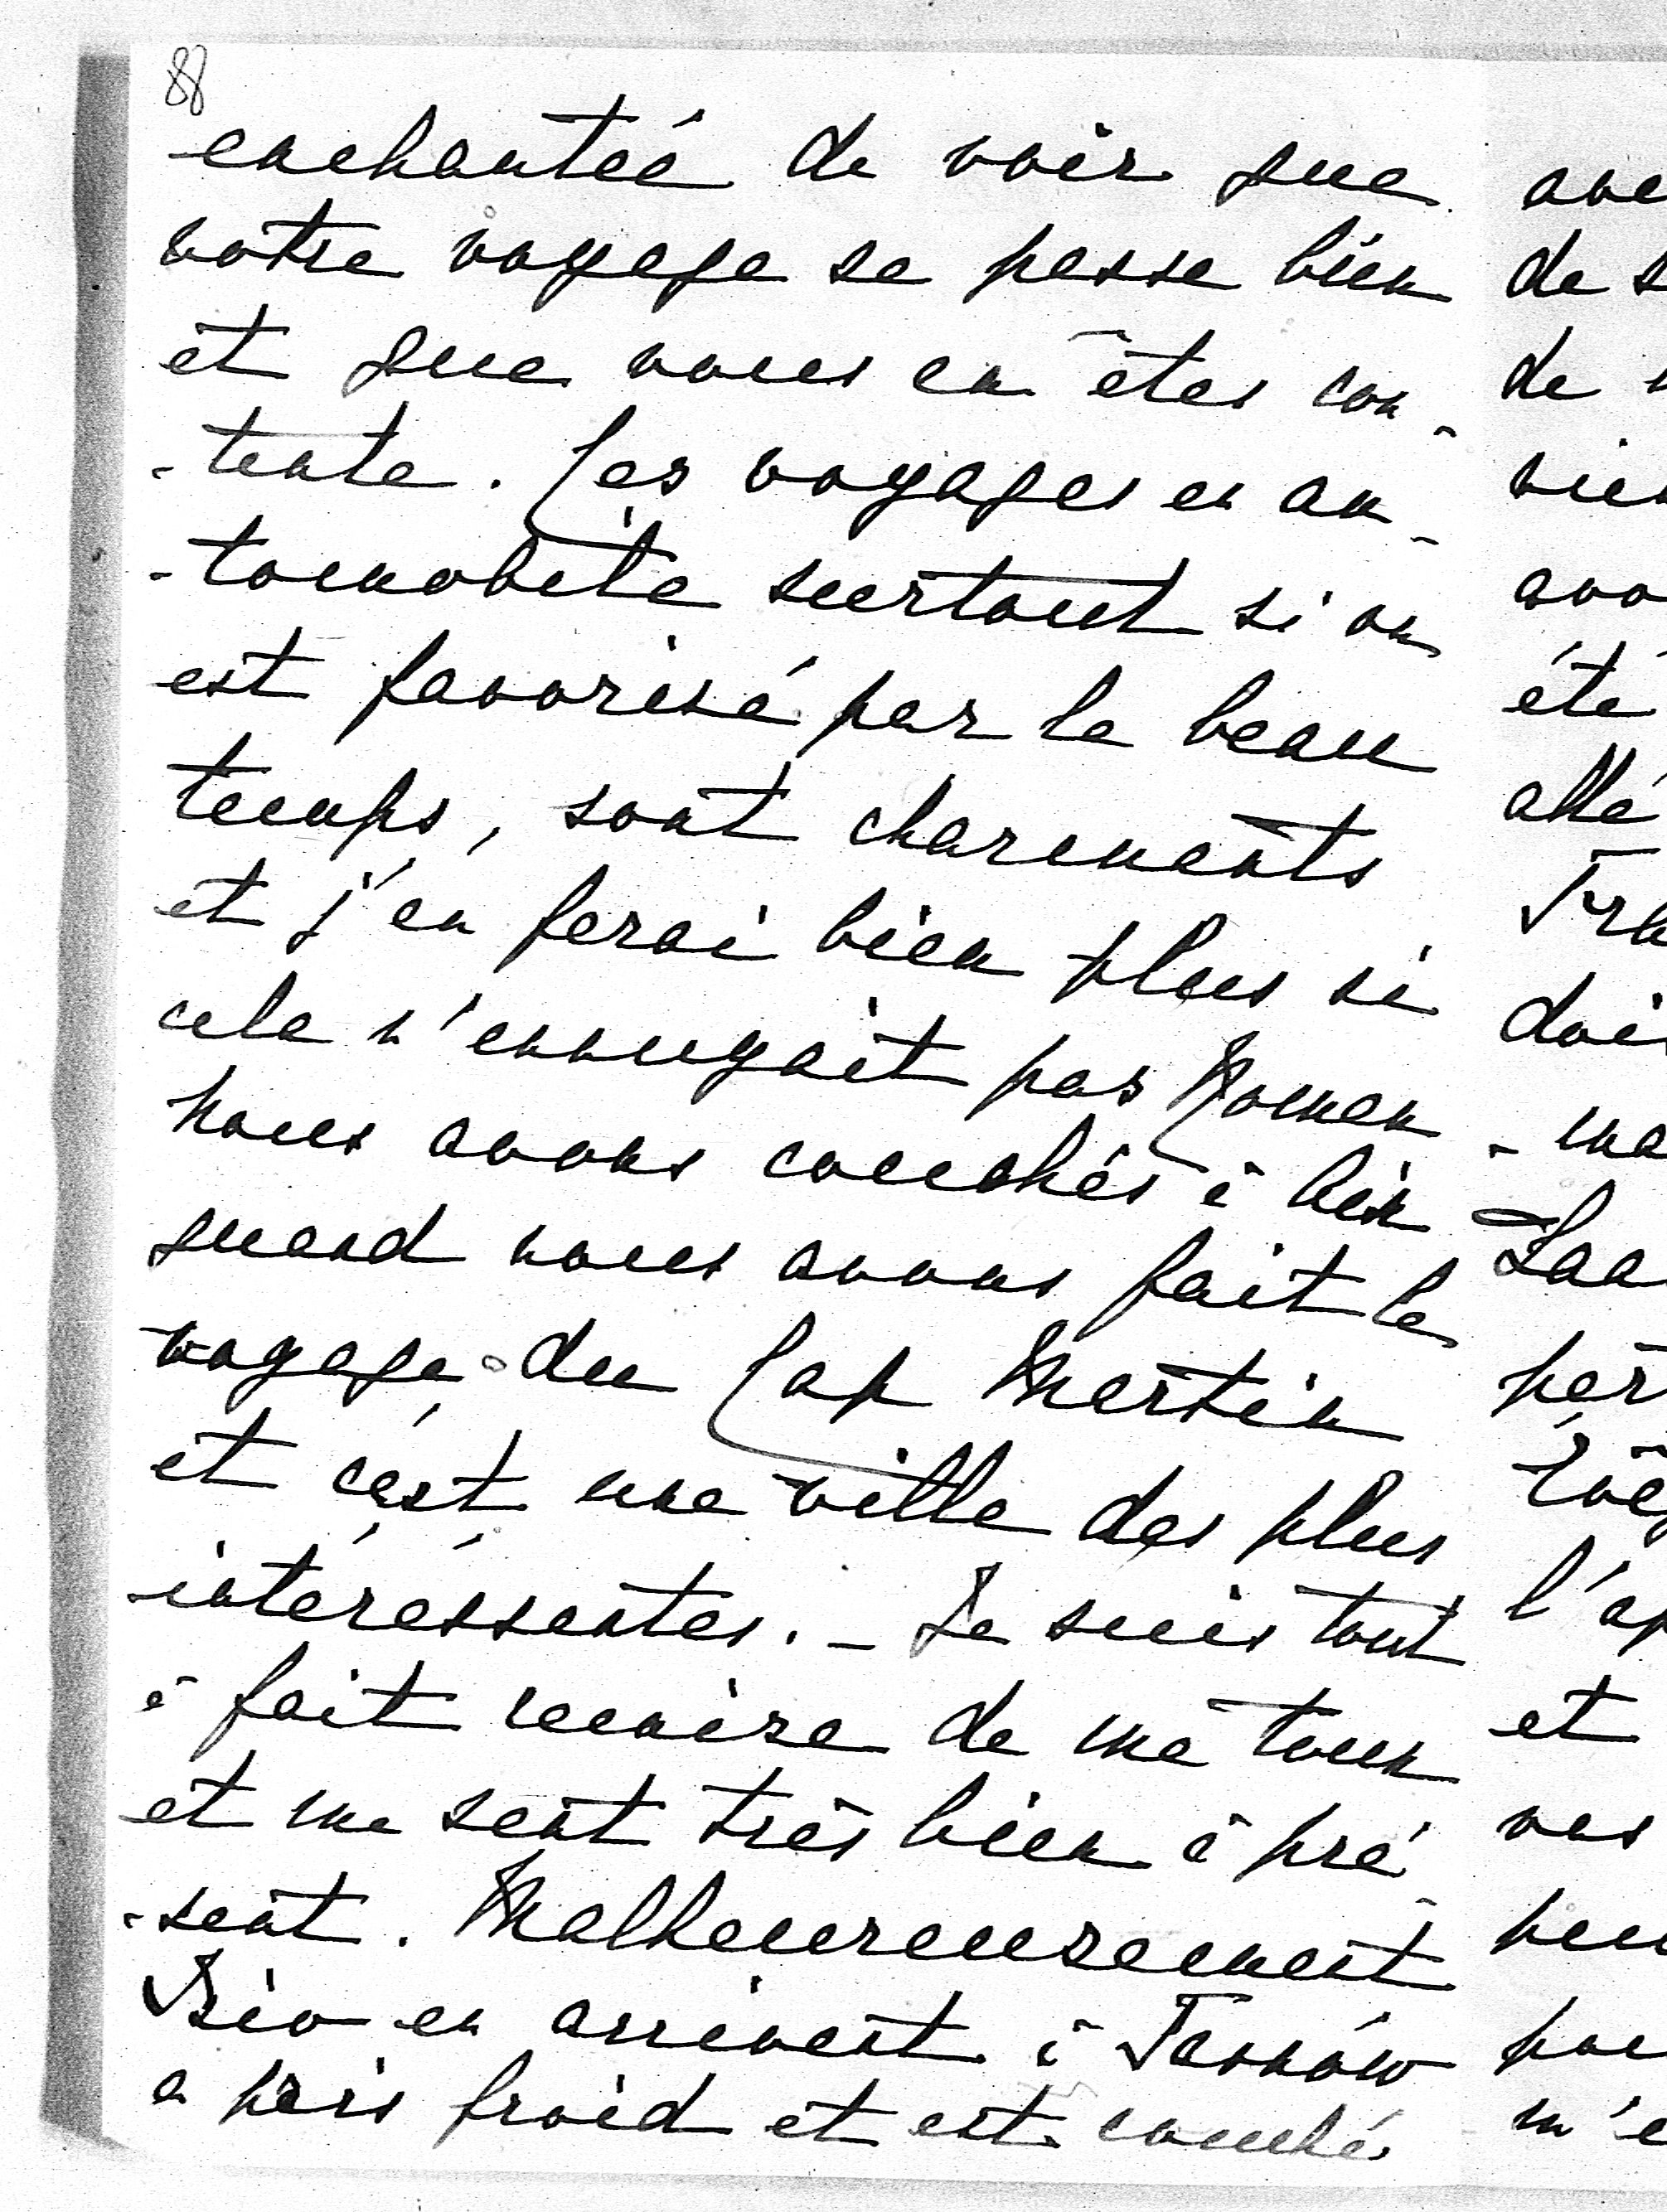 88
enchantée de voir que
votre voyage se passe bien
et que vous en êtes con-
-tente. Les voyages en au-
-tomobile surtout si on
est favorisé par le beau
temps, sont charmants
et j'en ferai bien plus si
cela n'ennuyait pas Roman
nous avons couchés à
quand nous avons fait le
voyage du Cap Martin
et c'est une ville des plus
intéressantes. - Je suis tout
à fait remise de ma toux
et me sent très bien à pré-
-sent. Malheureusement
en arrivant à Tarnów
a pris froid et est couché
ave
de s
de
vien
avo
été
allé
doi
- ma
l'ap
et
vos
m'e